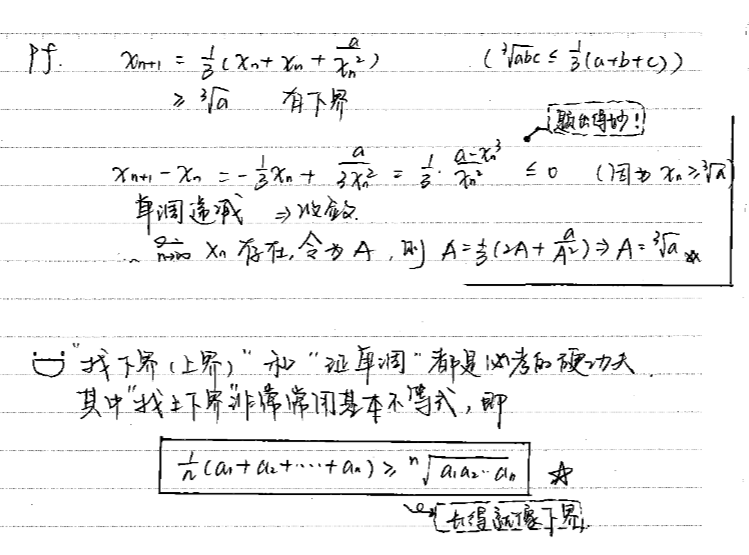 Pf. xₙ₊₁ = 1/3 (xₙ + xₙ + a/xₙ²) (∛abc ≤ 1/3 (a+b+c))
≥ ∛a 有下界
题出得妙!
xₙ₊₁ - xₙ = -1/3 xₙ + a/3xₙ² = 1/3 · (a-xₙ³)/xₙ² ≤ 0 (因为 xₙ ≥ ∛a)
单调递减 ⇒ 收敛.
n→∞ xₙ 存在, 令为 A, 则 A = 1/3 (2A + a/A²) ⇒ A = ∛a
"找下界(上界)" 和 "证单调" 都是必考的硬功夫.
其中"找上下界"非常常用基本不等式, 即
1/n (a₁ + a₂ + ⋯ + aₙ) ≥ ⁿ√a₁a₂⋯aₙ ☆
长得就像下界.